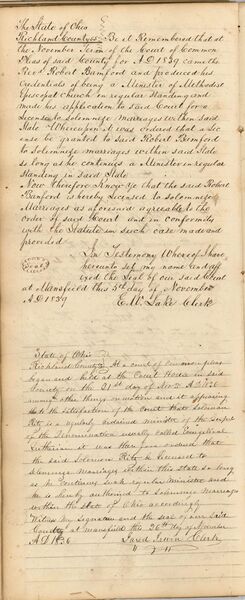 The State of Ohio
Richland County ss Be it Remembered that at
the November Term of the Court of Common
Pleas of said County for A D 1839 came the
Rev. Robert Bamford and produced his
Credentials of being a Minister of Methodist
Episcopal Church in regular Standing and
made his application to said Court for a
License to solemnize marriages within said
State Whereupon it was ordered that a License
be granted to said Robert Bamford
to solemnize marriages within said State
so long as he continues a Minister in regular
standing in said State
Now therefore Know Ye that the said Robert
Bamford is hereby Licensed to solemnize
Marriages as aforesaid agreeable to the
order of said Court and in conformity
with the Statute in such case made and
provided
In Testimony Whereof I have
hereunto set my name and affixed
the Seal of our said Court
at Mansfield this 5th day of November
A D 1839
E. W. Lake Clerk
State of Ohio
Richland County At a court of common pleas
began and held at the Court House in said
County on the 21st day of Nov. A D 1836
among other things was done and it appearing
to the satisfaction of the Court that Solomon
Ritz is a regularly ordained minister of the Gospel
of the Denomination usually called Evangelical
Lutheran it was therefore ordered that
the said Solomon Ritz be licensed to
solemnize marriages within this state so long
as he continues such regular minister and
he is hereby authorized to solemnize marriages
within the State of Ohio accordingly
Witness my signature and the seal of our said
County at Mansfield this 26th day of November
A D 1836 Jared Irwin Clerk